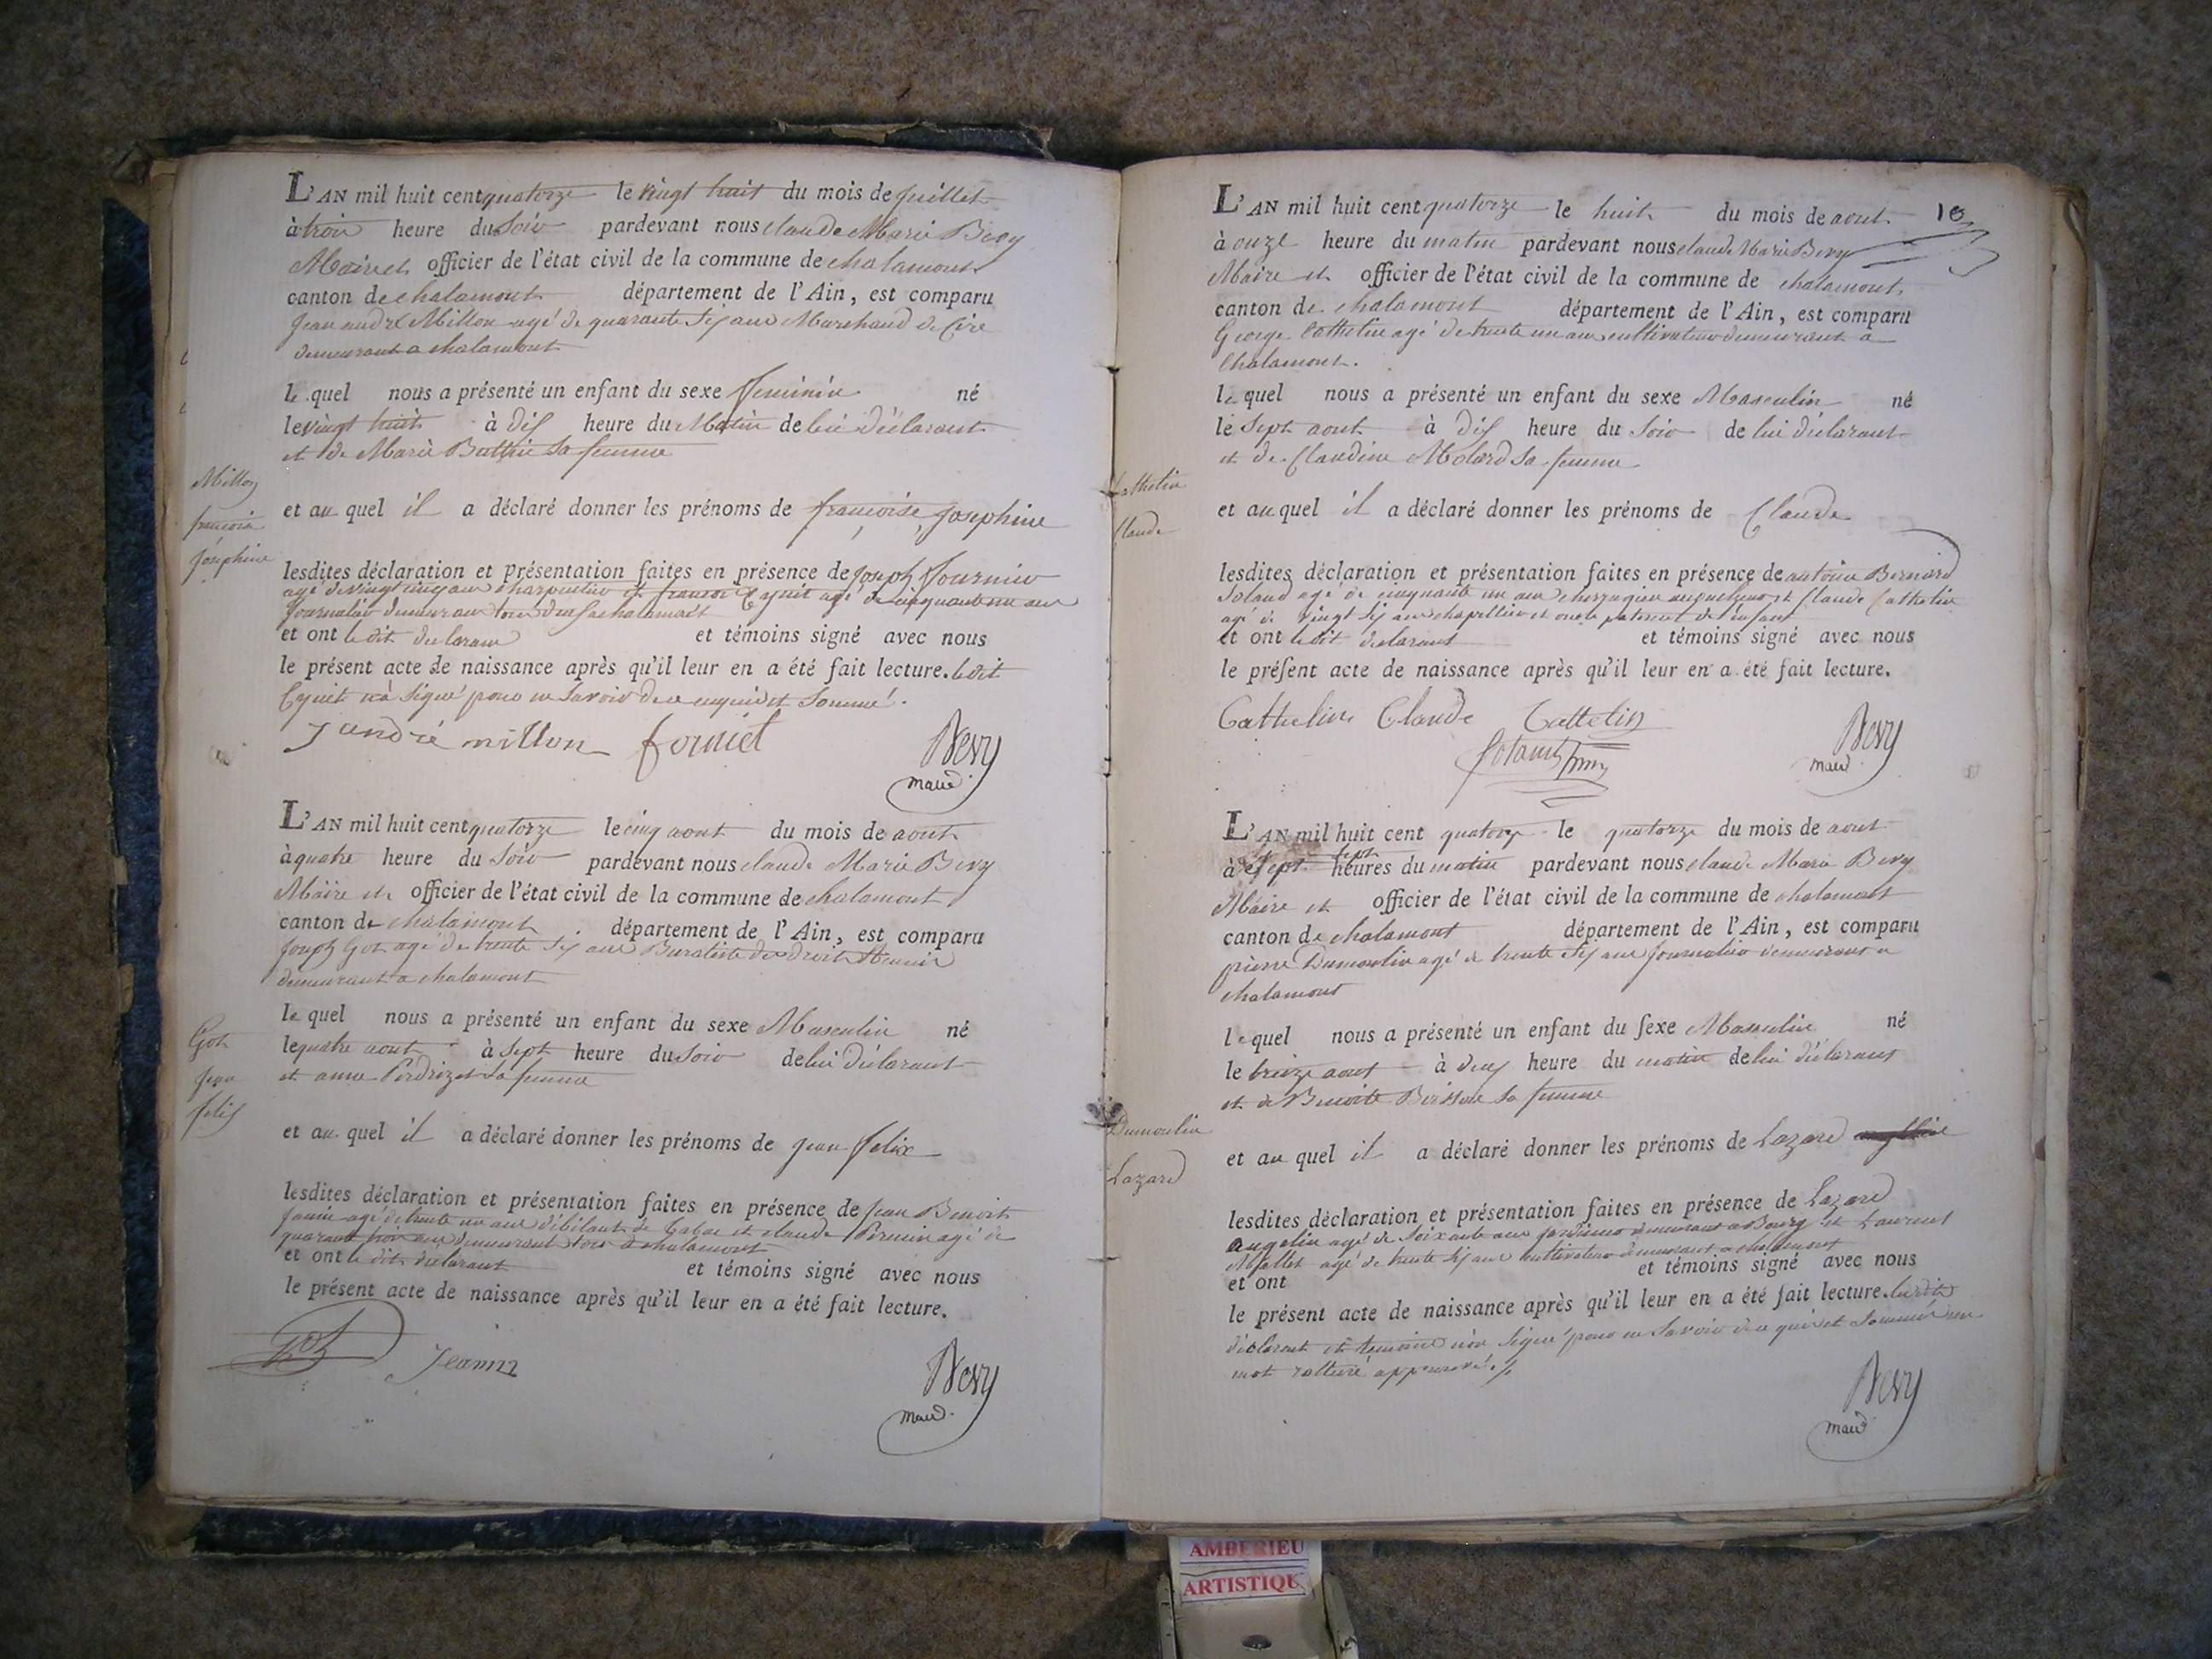 L'AN mil huit cent quatorze le vingt huit du mois de juillet
à trois heure du Soir pardevant nous claude Marie Bevy
Maire et officier de l'état civil de la commune de chalamont
canton de chalamont département de l'Ain, est comparu
jean andré Millon agé de quarante six ans Marchand de Cire
demeurant a chalamont
le quel nous a présenté un enfant du sexe feminin né
le vingt huit à dix heure du Matin de lui déclarant
et de Marie sa femme
Millon
et au quel il a déclaré donner les prénoms de françoise josephine
francoise
josephine
lesdites déclaration et présentation faites en présence de joseph fournier
agé de vingt cinq ans charpentier et francois agé de cinquante un ans
journalier demeurant tous deux a chalamont
et ont le dit declarant et témoins signé avec nous
le présent acte de naissance après qu'il leur en a été fait lecture. ledit
n'a signé pour ne savoir de ce enquis et sommé.
J andré millon forniet Bevy
maire
L'AN mil huit cent quatorze le cinq aout du mois de aout
à quatre heure du Soir pardevant nous claude Marie Bevy
Maire et officier de l'état civil de la commune de chalamont
canton de chalamont département de l'Ain, est comparu
joseph Got agé de trente six ans Buraliste des droits
demeurant a chalamont
le quel nous a présenté un enfant du sexe Masculin né
le quatre aout à sept heure du soir de lui déclarant
et anne Perdrizet sa femme
Got
jean
felix
et au quel il a déclaré donner les prénoms de jean felix
lesdites déclaration et présentation faites en présence de jean Benoit
janin agé de trente un ans débitant de tabac et claude agé de
quarante trois ans demeurant tous a chalamont
et ont le dit déclarant et témoins signé avec nous
le présent acte de naissance après qu'il leur en a été fait lecture.
Got Jeanin Bevy
maire
L'AN mil huit cent quatorze le huit du mois de aout 10
à onze heure du matin pardevant nous claude Marie Bevy
Maire et officier de l'état civil de la commune de chalamont
canton de chalamont département de l'Ain, est comparu
George Cathelin agé de trente un ans cultivateur demeurant a
Chalamont.
le quel nous a présenté un enfant du sexe Masculin né
le sept aout à dix heure du soir de lui déclarant
et de Claudine Molard sa femme
Cathelin
Claude
et au quel il a déclaré donner les prénoms de Claude
lesdites déclaration et présentation faites en présence de antoine Bernard
agé de cinquante un ans chirurgien et Claude Cathelin
agé de vingt six ans chapellier et oncle paternel de l'enfant
et ont le dit declarant et témoins signé avec nous
le préſent acte de naissance après qu'il leur en a été fait lecture.
Cathelin Claude Cattelin Bevy
maire
L'AN mil huit cent quatorze le quatorze du mois de aout
à sept heures du matin pardevant nous claude Marie Bevy
Maire et officier de l'état civil de la commune de chalamont
canton de chalamont département de l'Ain, est comparu
pierre Dumoulin agé de trente six ans journalier demeurant a
chalamont
le quel nous a présenté un enfant du ſexe Masculin né
le treize aout à deux heure du matin de lui déclarant
et de Benoite Buisson sa femme
Dumoulin
Lazard
et au quel il a déclaré donner les prénoms de Lazard
lesdites déclaration et présentation faites en présence de Lazard
angelin agé de soixante ans jardinier demeurant a Bourg et Laurent
agé de trente six ans cultivateur demeurant a chalamont
et ont et témoins signé avec nous
le présent acte de naissance après qu'il leur en a été fait lecture. lesdits
déclarant et temoins n'on signé pour ne savoir de ce quis et sommés un
mot raturé approuvé.
Bevy
maire
AMBERIEU
ARTISTIQU